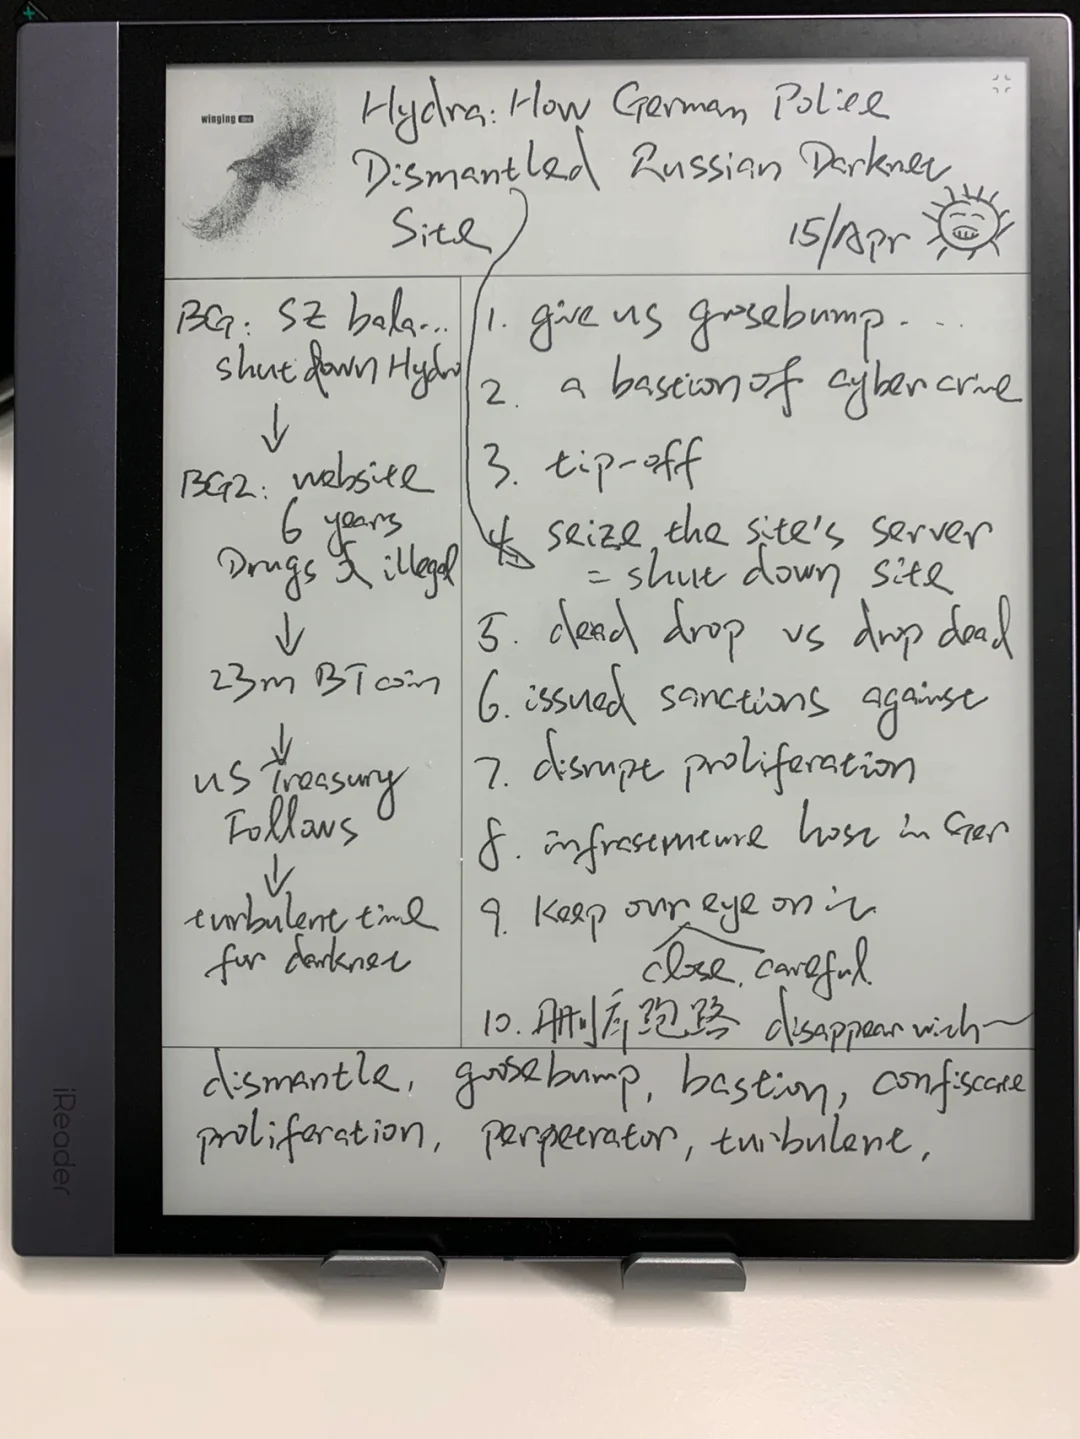 winging
Hydra: How German Police
Dismantled Russian Darknet
Site
15/Apr
BG: SZ bala...
shut down Hydra
↓
BG2: website
6 years
Drugs & illegal
↓
23m BT coin
↓
US Treasury
Follows
↓
turbulent time
for darknet
1. give us goosebump....
2. a bastion of cyber crime
3. tip-off
4. seize the site's server
= shut down site
5. dead drop vs drop dead
6. issued sanctions against
7. disrupt proliferation
8. infrastructure host in Ger
9. Keep our eye on it
close, careful
10. 删库跑路 disappear with~
dismantle, goosebump, bastion, confiscate
proliferation, perpetrator, turbulent,
iReader